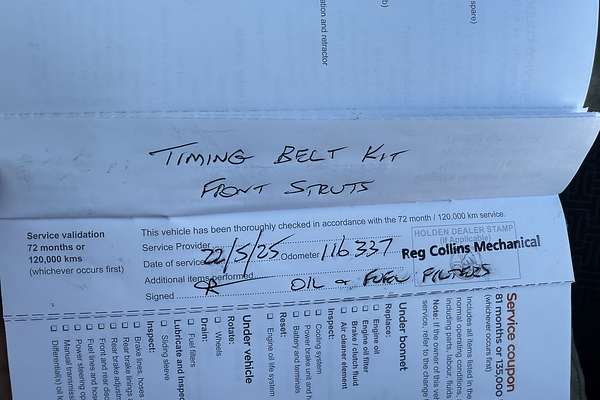 b)
spare)
ation and retractor
TIMING BELT KIT
FRONT STRUTS
Service validation
72 months or
120,000 kms
(whichever occurs first)
This vehicle has been thoroughly checked in accordance with the 72 month / 120,000 km service.
HOLDEN DEALER STAMP
(If Applicable)
Service Provider
Date of service 22/5/25 Odometer 116337 Reg Collins Mechanical
Additional items performed
OIL & FUEL FILTERS
Signed
Service coupon
81 months or 135,000
(whichever occurs first)
Includes all items listed in the
normal operating conditions,
including parts, labour, fluids
Note: If the owner of this ve
service, refer to the change
Under bonnet
Replace:
Engine oil
Engine oil filter
Brake / clutch fluid
Air cleaner element
Inspect:
Cooling system
Power brake unit and h
Battery and terminals
Reset:
Engine oil life system
Under vehicle
Rotate:
Wheels
Drain:
Fuel filters
Lubricate and Inspect
Sliding sleeve
Inspect:
Brake lines, hoses
Rear brake linings
Rear brake adjustm
Front and rear disc
Fuel lines and hos
Power steering op
Manual transmiss
Differential(s) oil l